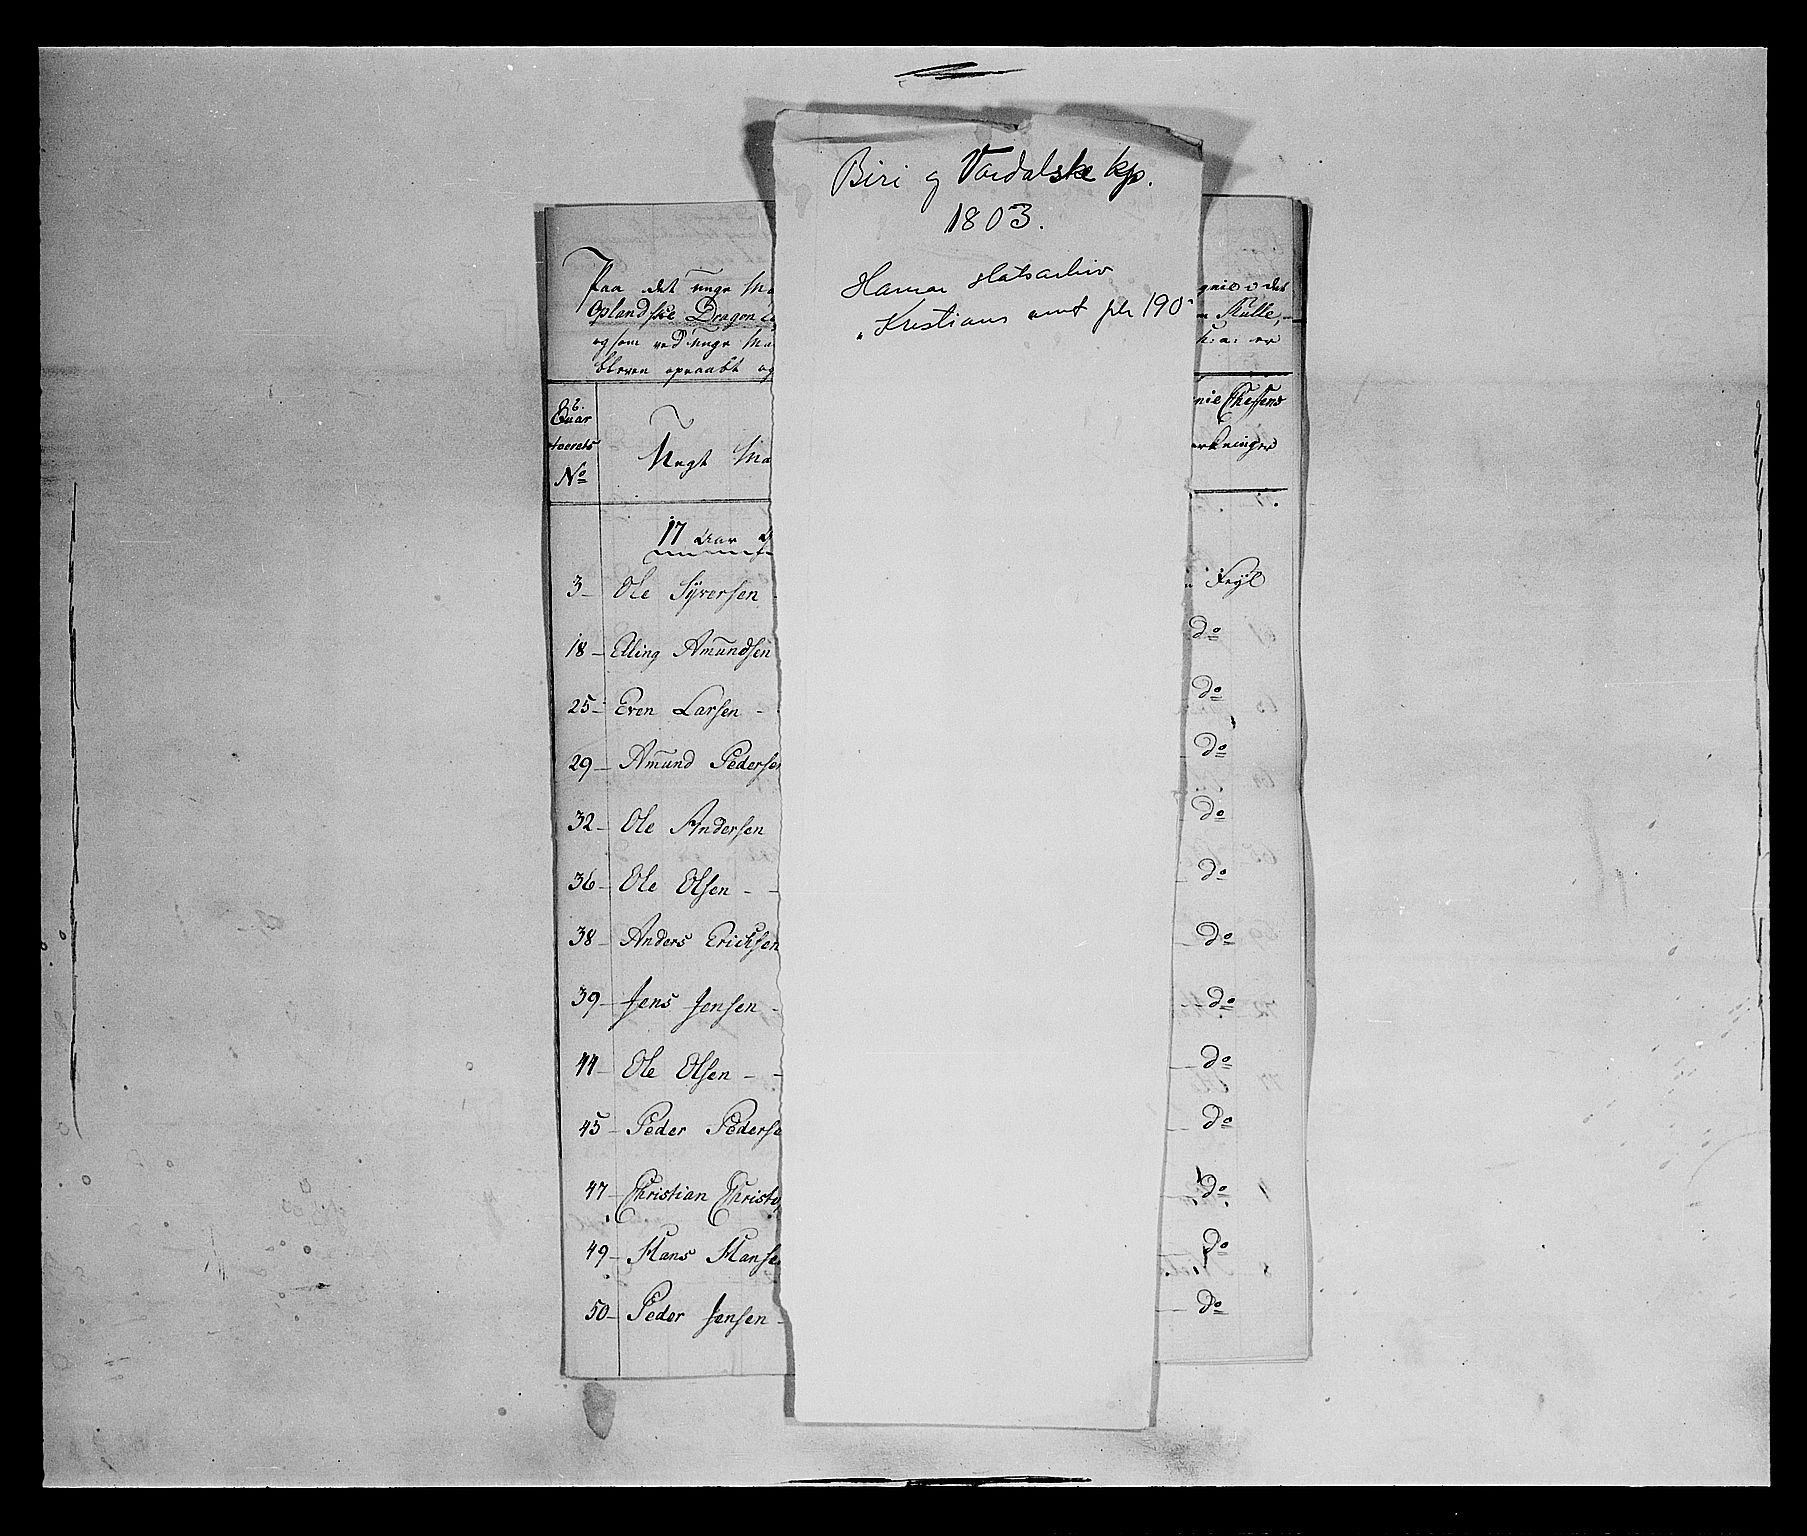 Biri og Vardalske kp.
1803.
Hamar statsarkiv
" Kristians amt pk 190
Paa det unge Ma
Oplandske Dragon
og som ved unge Ma
bleven opraabt og
gnie v det
Rulle,
er
Qvar
teerets
No
Ungt Ma
nie Cheffens
erkninger
17 Aar
3 - Ole Syversen - Feyl
18 - Elling Amundsen do
25 - Even Larsen - do
29 - Amund Pedersen - do
32 - Ole Andersen - do
36 - Ole Olsen - - - do
38 - Anders Ericksen - do
39 - Jens Jensen - - do
44 - Ole Olsen - - - do
45 - Peder Pederse - do
47 - Christian Christo - do
49 - Hans Hanse do
50 - Peder Jensen - - do